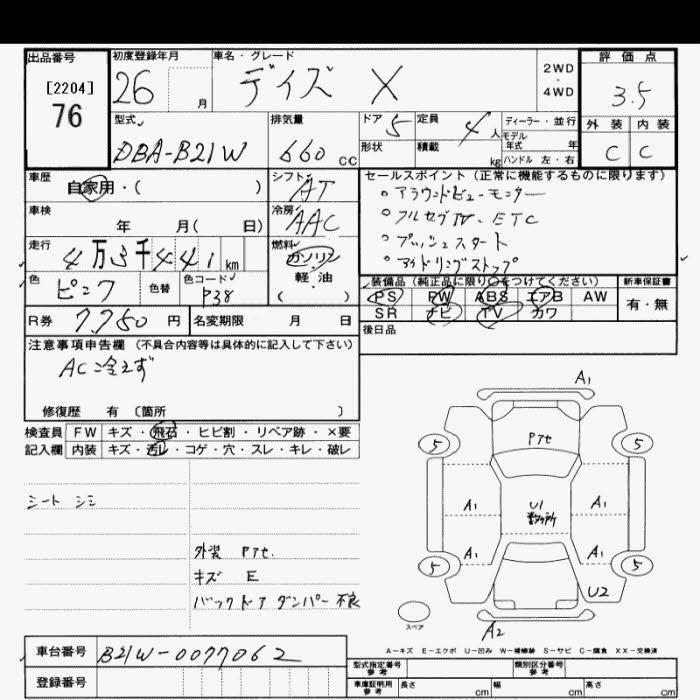 出品番号 初度登録年月 車名・グレード 評価点
[2204] 26 月 デイズ X 2WD・4WD 3.5
76
型式 排気量 ドア 5 定員 4 人 ディーラー・並行 外装 内装
DBA-B21W 660 CC 形状 積載 kg モデル年式 年 C C
ハンドル 左・右
車歴 シフト セールスポイント (正常に機能するものに限ります)
自家用・( ) AT 。アラウンドビューモニター
車検 冷房 。フルセグTV、ETC
年 月( 日) AAC 。プッシュスタート
走行 燃料 。アイドリングストップ
4万3千441 km ガソリン
軽・油
( )
色 色替 色コード 装備品 (純正品に限り○をつけてください) 新車保証書
ピンク P38 PS PW ABS エアB AW 有・無
SR ナビ TV カワ
R券 7,750 円 名変期限 月 日 後日品
注意事項申告欄 (不具合内容等は具体的に記入して下さい)
AC冷えず
修復歴 有 (箇所 )
検査員 FW キズ・飛石・ヒビ割・リペア跡・×要
記入欄 内装 キズ・汚レ・コゲ・穴・スレ・キレ・破レ
シート シミ
外装 Pアセ.
キズ E
バックドア ダンパー 不良
A1
5 Pアセ 5
A1 U1 A1
数ヶ所
A1 A1
5 5
U2
スペア A2
A-キズ E-エクボ U-凹み W-補修跡 S-サビ C-腐食 XX-交換済
車台番号 B21W-0077062
登録番号
型式指定番号 参考 類別区分番号 参考
車庫証明用 参考 長さ cm 幅 cm 高さ cm